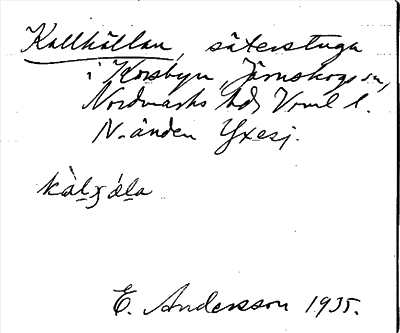 Kallhällan, säterstuga
i Korsbyn, Järnskogs sn,
Nordmarks hd, Vrml l.
N. änden Yxesj.
E. Andersson 1935.